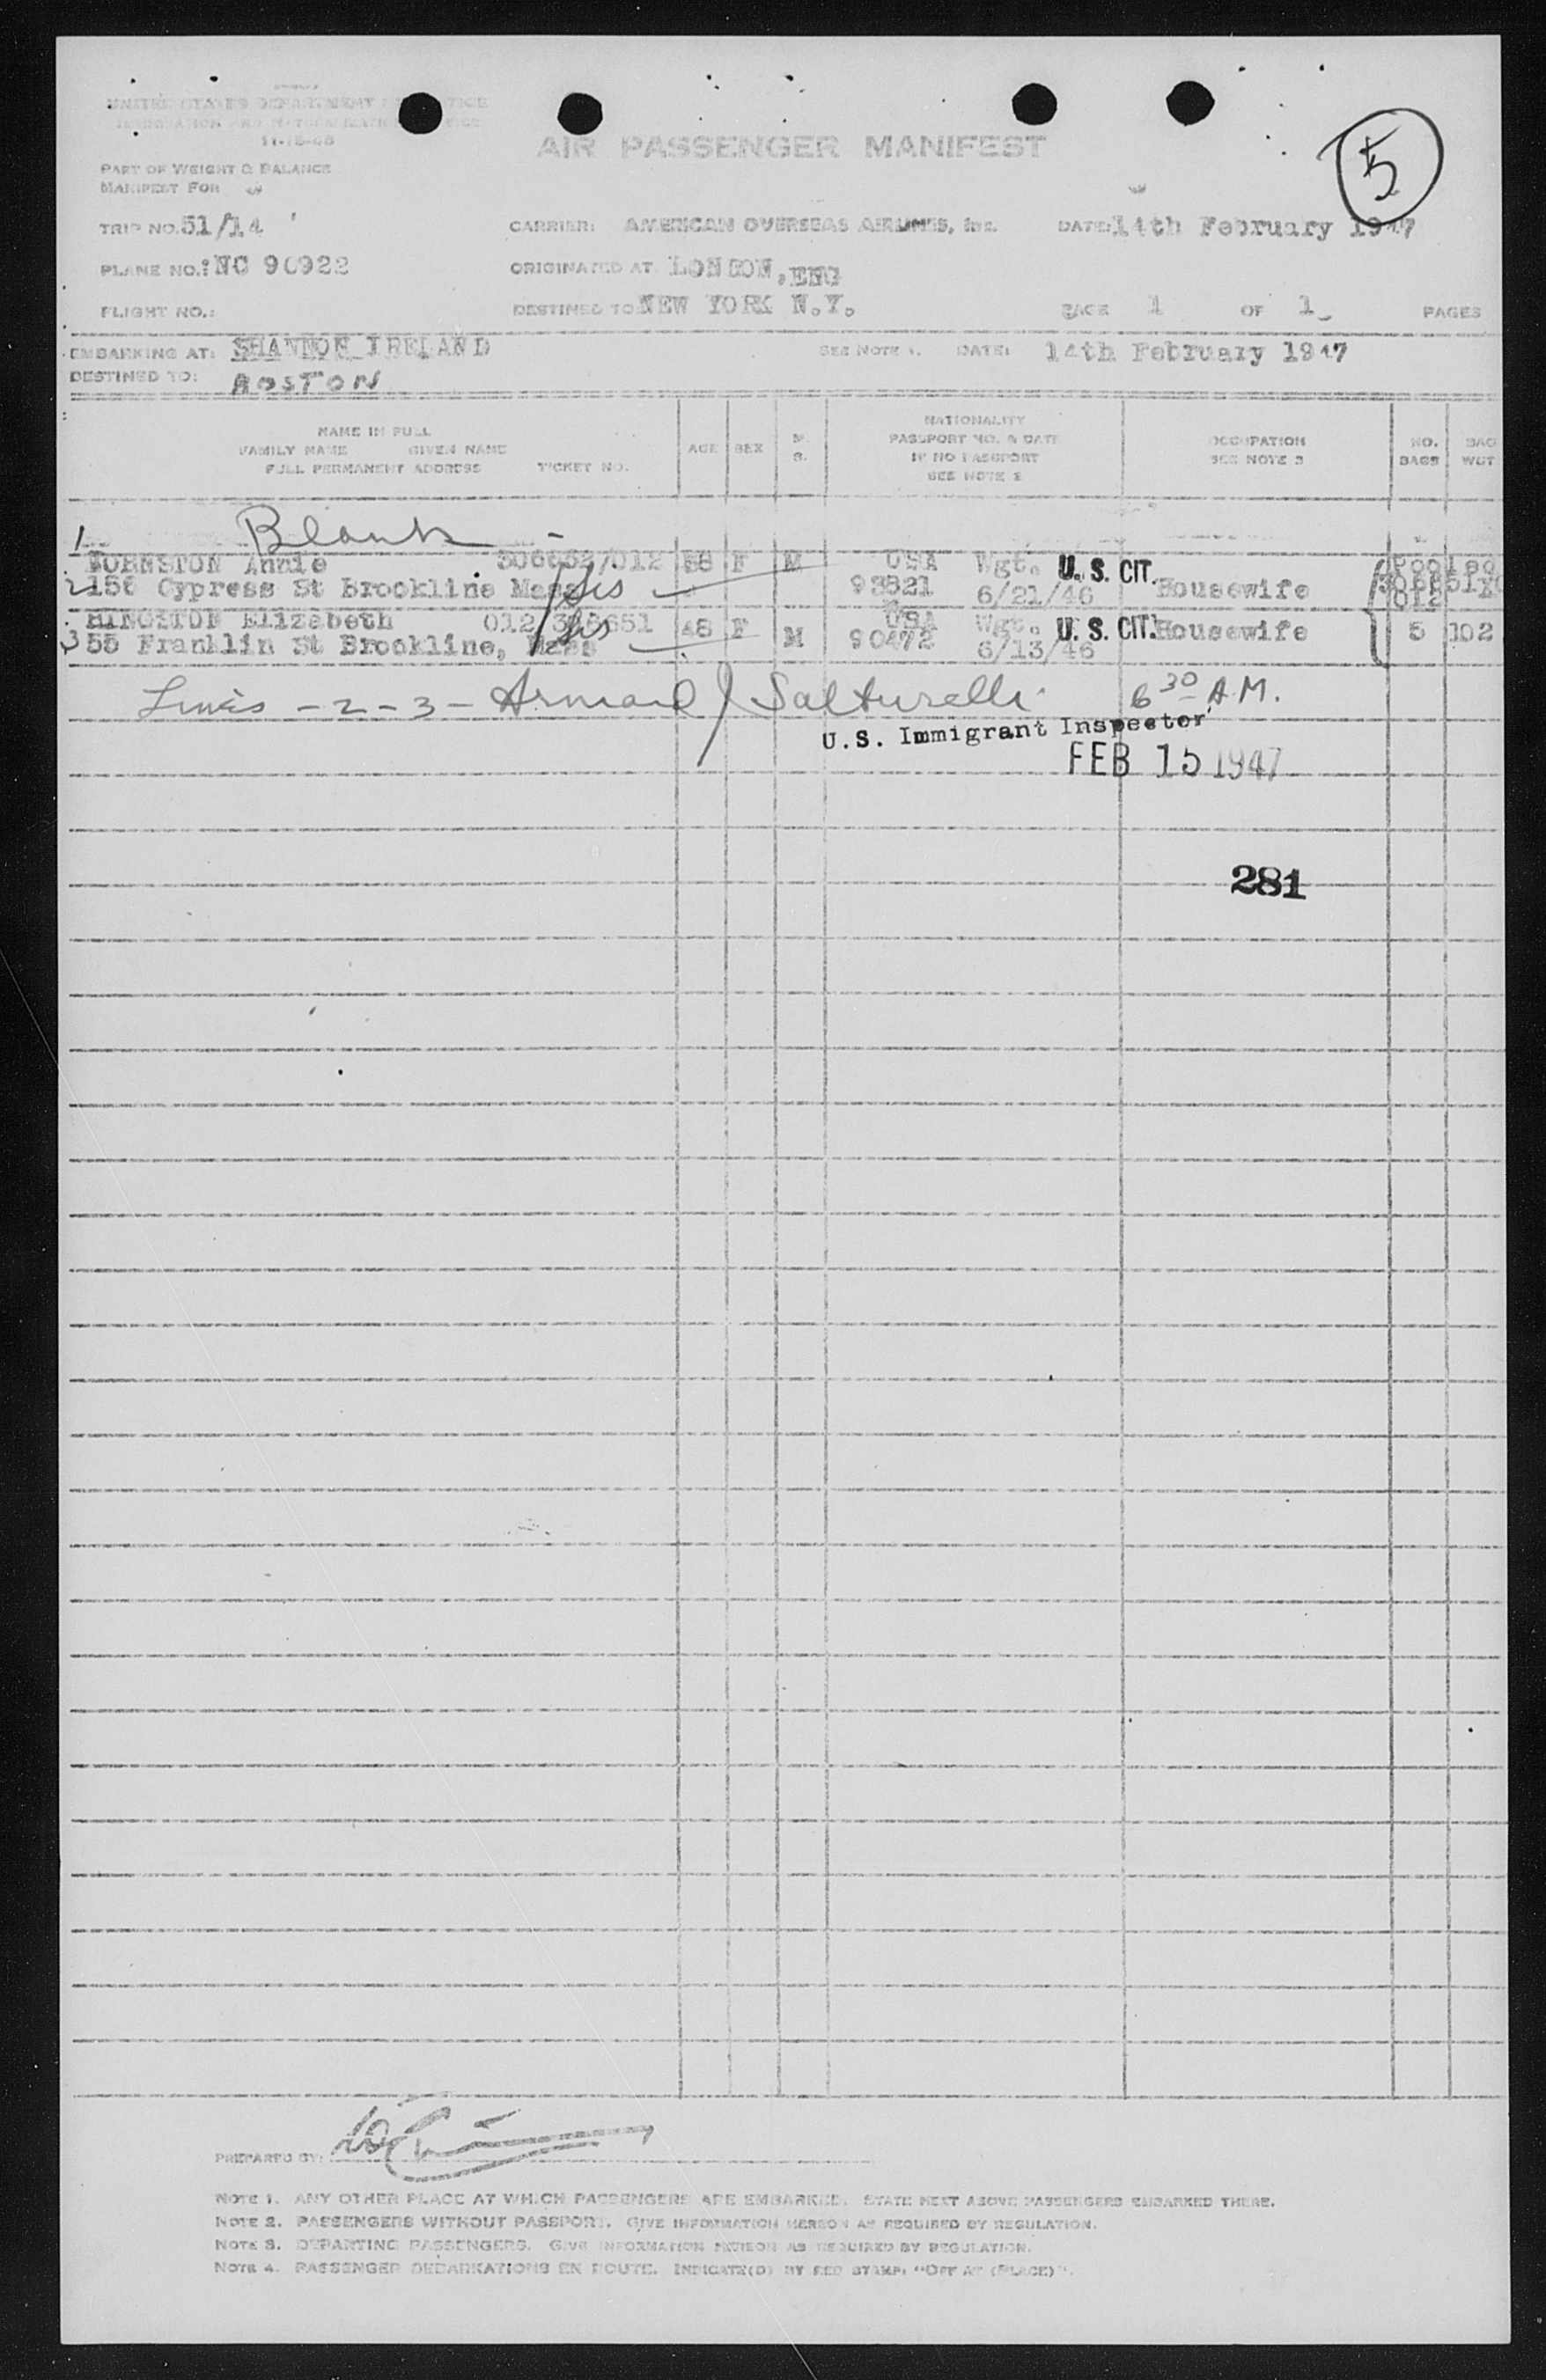 UNITED STATES DEPARTMENT OF JUSTICE
IMMIGRATION AND NATURALIZATION SERVICE
11-15-45
PART OF WEIGHT & BALANCE
MANIFEST FOR
AIR PASSENGER MANIFEST
5
TRIP NO. 51/14
CARRIER: AMERICAN OVERSEAS AIRLINES, Inc.
DATE: 14th February 1947
PLANE NO.: NC 90922
ORIGINATED AT LONDON, ENG
FLIGHT NO.:
DESTINED TO NEW YORK N.Y.
PAGE 1 OF 1 PAGES
EMBARKING AT: SHANNON IRELAND
SEE NOTE 1. DATE: 14th February 1947
DESTINED TO: BOSTON
NAME IN FULL
FAMILY NAME GIVEN NAME
FULL PERMANENT ADDRESS TICKET NO.
AGE
SEX
M.
S.
NATIONALITY
PASSPORT NO. & DATE
IF NO PASSPORT
SEE NOTE 2
OCCUPATION
SEE NOTE 3
NO.
BAGS
BAG
WGT
1 Blank -
JOHNSTON Annie 306652/012 F M USA Wgt. U.S. CIT. Pooled
2 156 Cypress St Brookline Mass 93821 6/21/46 Housewife 012
Elizabeth 012 48 F M USA Wgt. U.S. CIT. Housewife 5 102
3 55 Franklin St Brookline, Mass 90472 6/13/46
Lines - 2 - 3 - Armand J Salturelli 6 30 A.M.
U.S. Immigrant Inspector
FEB 15 1947
281
PREPARED BY:
NOTE 1. ANY OTHER PLACE AT WHICH PASSENGERS ARE EMBARKED, STATE NEXT ABOVE PASSENGERS EMBARKED THERE.
NOTE 2. PASSENGERS WITHOUT PASSPORT. GIVE INFORMATION HEREON AS REQUIRED BY REGULATION.
NOTE 3. DEPARTING PASSENGERS. GIVE INFORMATION HEREON AS REQUIRED BY REGULATION.
NOTE 4. PASSENGER DEBARKATIONS EN ROUTE. INDICATE(D) BY RED STAMP, "OFF AT (PLACE)".